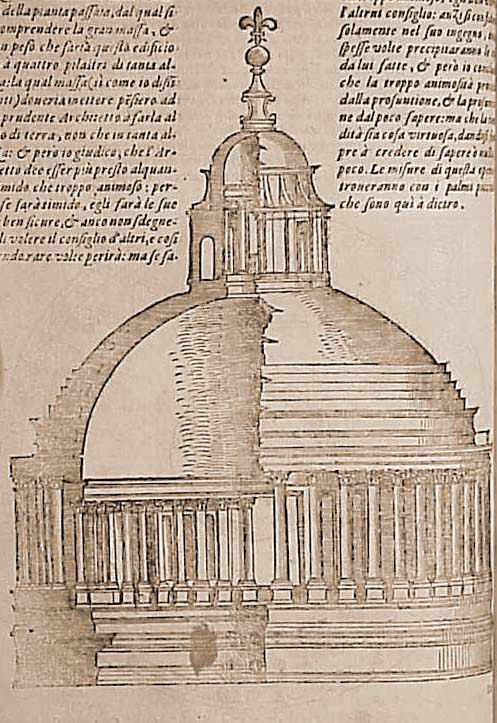 della pianta passata, dal qual si
comprendere la gran massa, &
n peso che saria questo edificio
à quattro pilastri di tanta al-
a: la qual massa (si come io dissi
ti) doveria mettere pēsiero ad
prudente Architetto à farla al
o di terra, non che in tanta al-
a: & però io giudico, che l'Ar-
etto dee esser più presto alquan-
imido che troppo animoso: per-
se sarà timido, egli farà le sue
ben sicure, & anco non sdegne-
di volere il consiglio d'altri, e cosi
ndo rare volte perirà: ma se sa-
l'altrui consiglio: anzi si con
solamente nel suo ingegno,
spesse volte precipitaranno l
da lui fatte, & però io con
che la troppo animosità pro
dalla prosuntione, & la prosun
ne dal poco sapere: ma che la
dità sia cosa virtuosa, dando
pre à credere di sapere ò nul
poco. Le misure di questa
troueranno con i palmi picc
che sono quì à dietro.